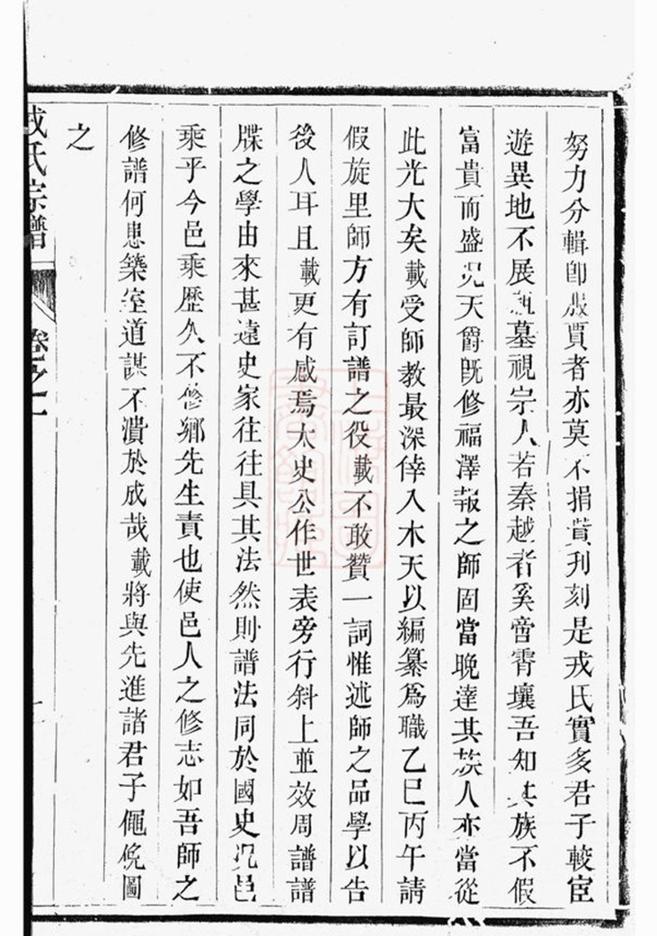 努力分輯卽服賈者亦莫不捐貲刋刻是戎氏實多君子較宦
遊異地不展邱墓視宗人若秦越者奚啻霄壤吾知其族不假
富貴而盛况天爵旣修福澤報之師固當晚達其族人亦當從
此光大矣載受師教最深倖入木天以編纂爲職乙巳丙午請
假旋里師方有訂譜之役載不敢贊一詞惟述師之品學以告
後人耳且載更有感焉太史公作世表旁行斜上並效周譜譜
牒之學由來甚遠史家往往具其法然則譜法同於國史况邑
乘乎今邑乘歷久不修鄉先生責也使邑人之修志如吾師之
修譜何患築室道謀不潰於成哉載將與先進諸君子僶俛圖
之
戎氏宗譜 卷之一